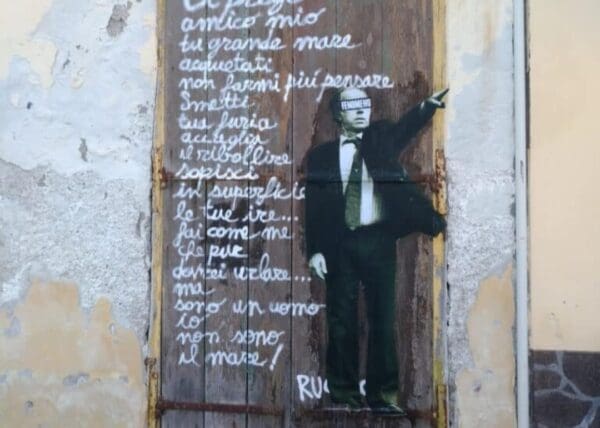 amico mio
tu grande mare
acquetati
non farmi più pensare
Smetti
tua furia
accogli
il ribollire
sopisci
in superficie
le tue ire...
fai come me
che pur
dovrei urlare...
ma
sono un uomo
io
non sono
il mare!
FENOMENO